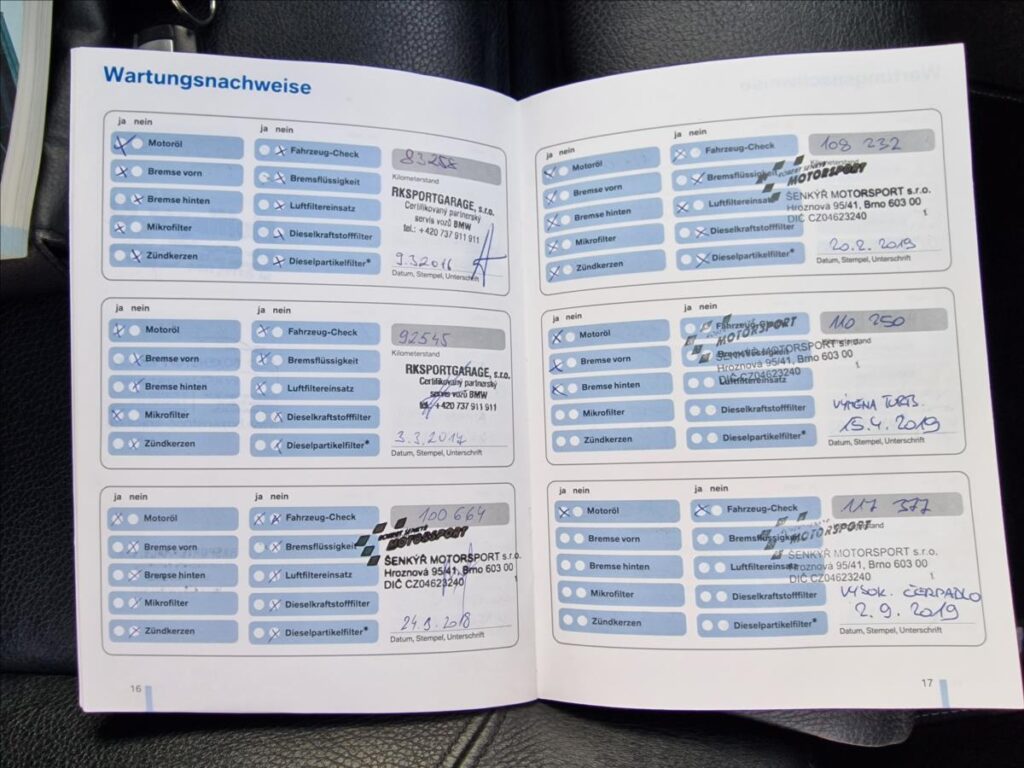 Wartungsnachweise
ja nein
Motoröl
Bremse vorn
Bremse hinten
Mikrofilter
Zündkerzen
ja nein
Fahrzeug-Check
Bremsflüssigkeit
Luftfiltereinsatz
Dieselkraftstofffilter
Dieselpartikelfilter*
83258
Kilometerstand
RKSPORTGARAGE, s.r.o.
Certifikovaný partnerský
servis vozů BMW
tel.: +420 737 911 911
9.3.2016
Datum, Stempel, Unterschrift
ja nein
Motoröl
Bremse vorn
Bremse hinten
Mikrofilter
Zündkerzen
ja nein
Fahrzeug-Check
Bremsflüssigkeit
Luftfiltereinsatz
Dieselkraftstofffilter
Dieselpartikelfilter*
92545
Kilometerstand
RKSPORTGARAGE, s.r.o.
Certifikovaný partnerský
servis vozů BMW
tel.: +420 737 911 911
3.3.2017
Datum, Stempel, Unterschrift
ja nein
Motoröl
Bremse vorn
Bremse hinten
Mikrofilter
Zündkerzen
ja nein
Fahrzeug-Check
Bremsflüssigkeit
Luftfiltereinsatz
Dieselkraftstofffilter
Dieselpartikelfilter*
100 664
MOTORSPORT
ŠENKÝŘ MOTORSPORT s.r.o.
Hroznová 95/41, Brno 603 00
DIČ CZ04623240 1
24.9.2018
Datum, Stempel, Unterschrift
16
ja nein
Motoröl
Bremse vorn
Bremse hinten
Mikrofilter
Zündkerzen
ja nein
Fahrzeug-Check
Bremsflüssigkeit
Luftfiltereinsatz
Dieselkraftstofffilter
Dieselpartikelfilter*
108 232
Kilometerstand
MOTORSPORT
ŠENKÝŘ MOTORSPORT s.r.o.
Hroznová 95/41, Brno 603 00
DIČ CZ04623240 1
20.2.2019
Datum, Stempel, Unterschrift
ja nein
Motoröl
Bremse vorn
Bremse hinten
Mikrofilter
Zündkerzen
ja nein
Fahrzeug-Check
Bremsflüssigkeit
Luftfiltereinsatz
Dieselkraftstofffilter
Dieselpartikelfilter*
110 250
MOTORSPORT
ŠENKÝŘ MOTORSPORT s.r.o.
Hroznová 95/41, Brno 603 00
DIČ CZ04623240 1
VÝMĚNA TURB.
15.4.2019
Datum, Stempel, Unterschrift
ja nein
Motoröl
Bremse vorn
Bremse hinten
Mikrofilter
Zündkerzen
ja nein
Fahrzeug-Check
Bremsflüssigkeit
Luftfiltereinsatz
Dieselkraftstofffilter
Dieselpartikelfilter*
117 377
MOTORSPORT
ŠENKÝŘ MOTORSPORT s.r.o.
Hroznová 95/41, Brno 603 00
DIČ CZ04623240 1
VYSOK. ČERPADLO
2.9.2019
Datum, Stempel, Unterschrift
17